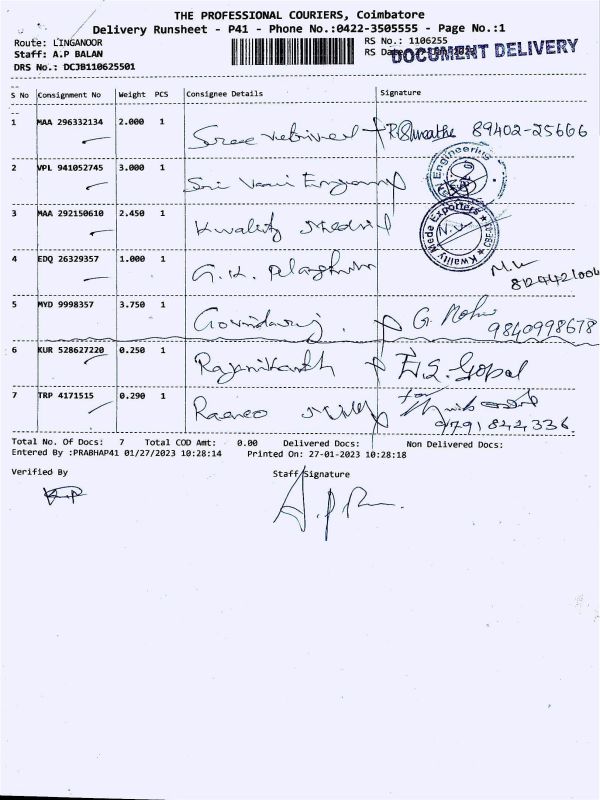 THE PROFESSIONAL COURIERS, Coimbatore
Delivery Runsheet - P41 - Phone No.:0422-3505555 - Page No.:1
Route: LINGANOOR
RS No.: 1106255
Staff: A.P BALAN
RS Date:
DOCUMENT DELIVERY
DRS No.: DCJB110625501
S No Consignment No Weight PCS Consignee Details Signature
1 MAA 296332134 2.000 1 Sree Vetrivel 89402-25666
2 VPL 941052745 3.000 1 Sri Vani Engineering
3 MAA 292150610 2.450 1 Kwality Kwality Mede Exporters N.V
4 EDQ 26329357 1.000 1 G.K.
5 MYD 9998357 3.750 1 Govindaraj. G. Mohan 9840998678
6 KUR 528627220 0.250 1 Rajanikanth S. Gopal
7 TRP 4171515 0.290 1 Mills for
9791844336.
Total No. Of Docs: 7 Total COD Amt: 0.00 Delivered Docs: Non Delivered Docs:
Entered By :PRABHAP41 01/27/2023 10:28:14 Printed On: 27-01-2023 10:28:18
Verified By Staff Signature